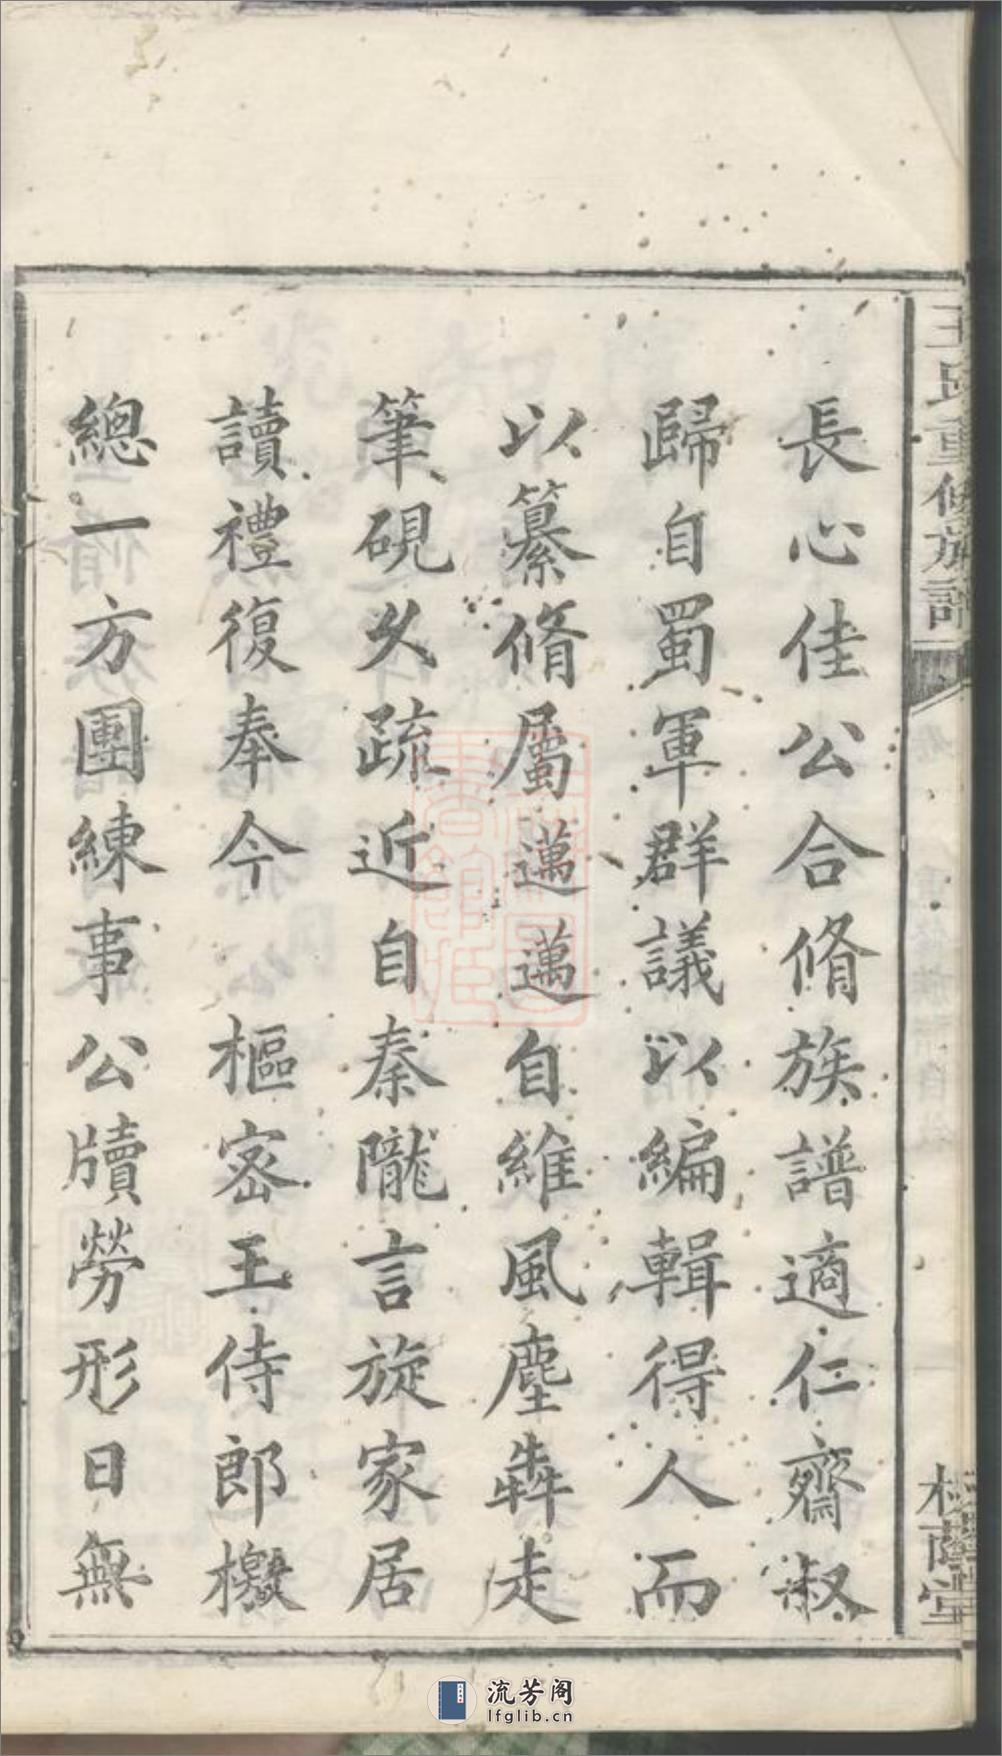 長心佳公合脩族譜適仁齋叔
歸自蜀軍群議以編輯得人而
以纂脩屬邁邁自維風塵犇走
筆硯久疏近自秦隴言旋家居
讀禮復奉今　樞密王侍郎檄
總一方團練事公牘勞形日無
王氏重修族譜
槐蔭堂
流芳阁
lfglib.cn